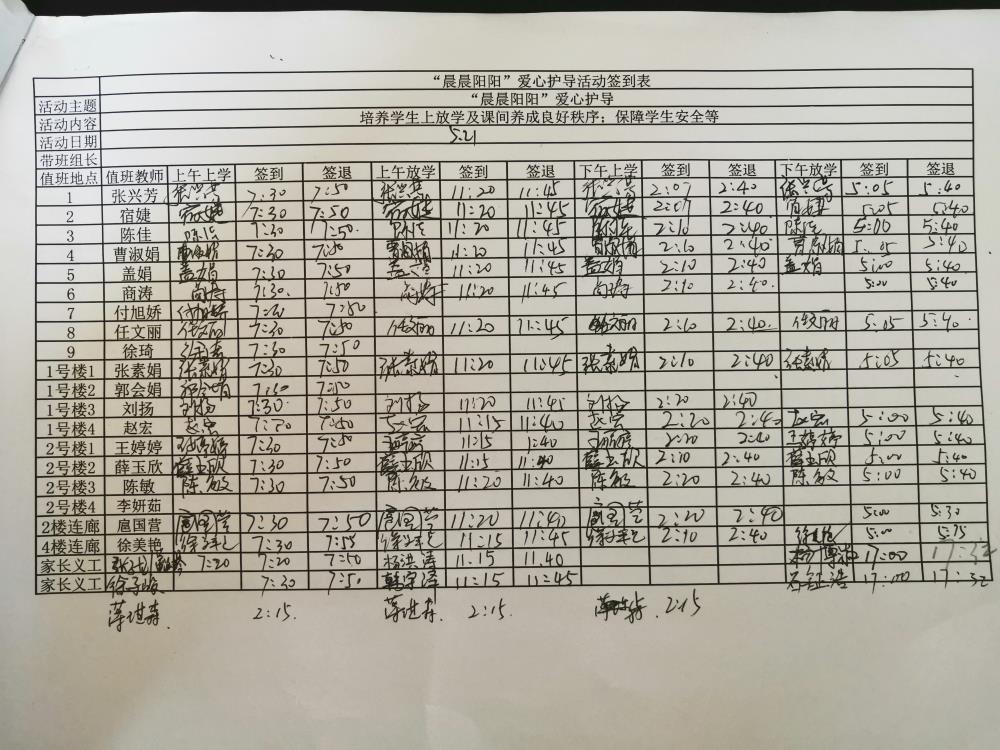 “晨晨阳阳”爱心护导活动签到表
活动主题 “晨晨阳阳”爱心护导
活动内容 培养学生上放学及课间养成良好秩序；保障学生安全等
活动日期 5.21
带班组长
值班地点 值班教师 上午上学 签到 签退 上午放学 签到 签退 下午上学 签到 签退 下午放学 签到 签退
1 张兴芳 张兴芳 7:30 7:50 张兴芳 11:20 11:45 张兴芳 2:07 2:40 张兴芳 5:05 5:40
2 宿婕 宿婕 7:30 7:50 宿婕 11:20 11:45 宿婕 2:07 2:40 宿婕 5:05 5:40
3 陈佳 陈佳 7:30 7:50 陈佳 11:20 11:45 陈佳 2:10 2:40 陈佳 5:00 5:40
4 曹淑娟 曹淑娟 7:30 7:50 曹淑娟 11:20 11:45 曹淑娟 2:10 2:40 曹淑娟 5:05 5:40
5 盖娟 盖娟 7:30 7:50 盖娟 11:20 11:45 盖娟 2:10 2:40 盖娟 5:00 5:40
6 商涛 商涛 7:30 7:50 商涛 11:20 11:45 商涛 2:10 2:40 5:00 5:40
7 付旭娇 付旭娇 7:50
8 任文丽 任文丽 7:30 7:50 任文丽 11:20 11:45 任文丽 2:10 2:40 任文丽 5:05 5:40
9 徐琦 徐琦 7:30 7:50
1号楼1 张素娟 张素娟 7:30 7:50 张素娟 11:20 11:45 张素娟 2:10 2:40 张素娟 5:05 5:40
1号楼2 郭会娟 郭会娟
1号楼3 刘扬 刘扬 7:30 7:50 刘扬 11:20 11:45 刘扬 2:20 2:40
1号楼4 赵宏 赵宏 7:50 赵宏 11:15 11:40 赵宏 2:20 2:40 赵宏 5:00 5:40
2号楼1 王婷婷 王婷婷 7:30 7:50 王婷婷 1:40 王婷婷 2:20 2:40 王婷婷 5:00 5:40
2号楼2 薛玉欣 薛玉欣 7:30 7:50 薛玉欣 11:15 11:40 薛玉欣 2:40 薛玉欣 5:00 5:40
2号楼3 陈敏 陈敏 7:30 7:50 陈敏 11:20 11:40 陈敏 2:20 2:40 陈敏 5:00 5:40
2号楼4 李妍茹 5:00 5:30
2楼连廊 扈国营 扈国营 7:30 7:50 扈国营 11:20 11:40 扈国营 2:20 2:40
4楼连廊 徐美艳 徐美艳 7:30 7:55 徐美艳 11:15 11:45 徐美艳 2:10 2:40 徐美艳 5:00
家长义工 7:20 7:20 7:50 杨洪涛 11.15 11.40 17:00
家长义工 7:30 7:50 11:15 11:45 17:00
2:15. 2:15. 2:15